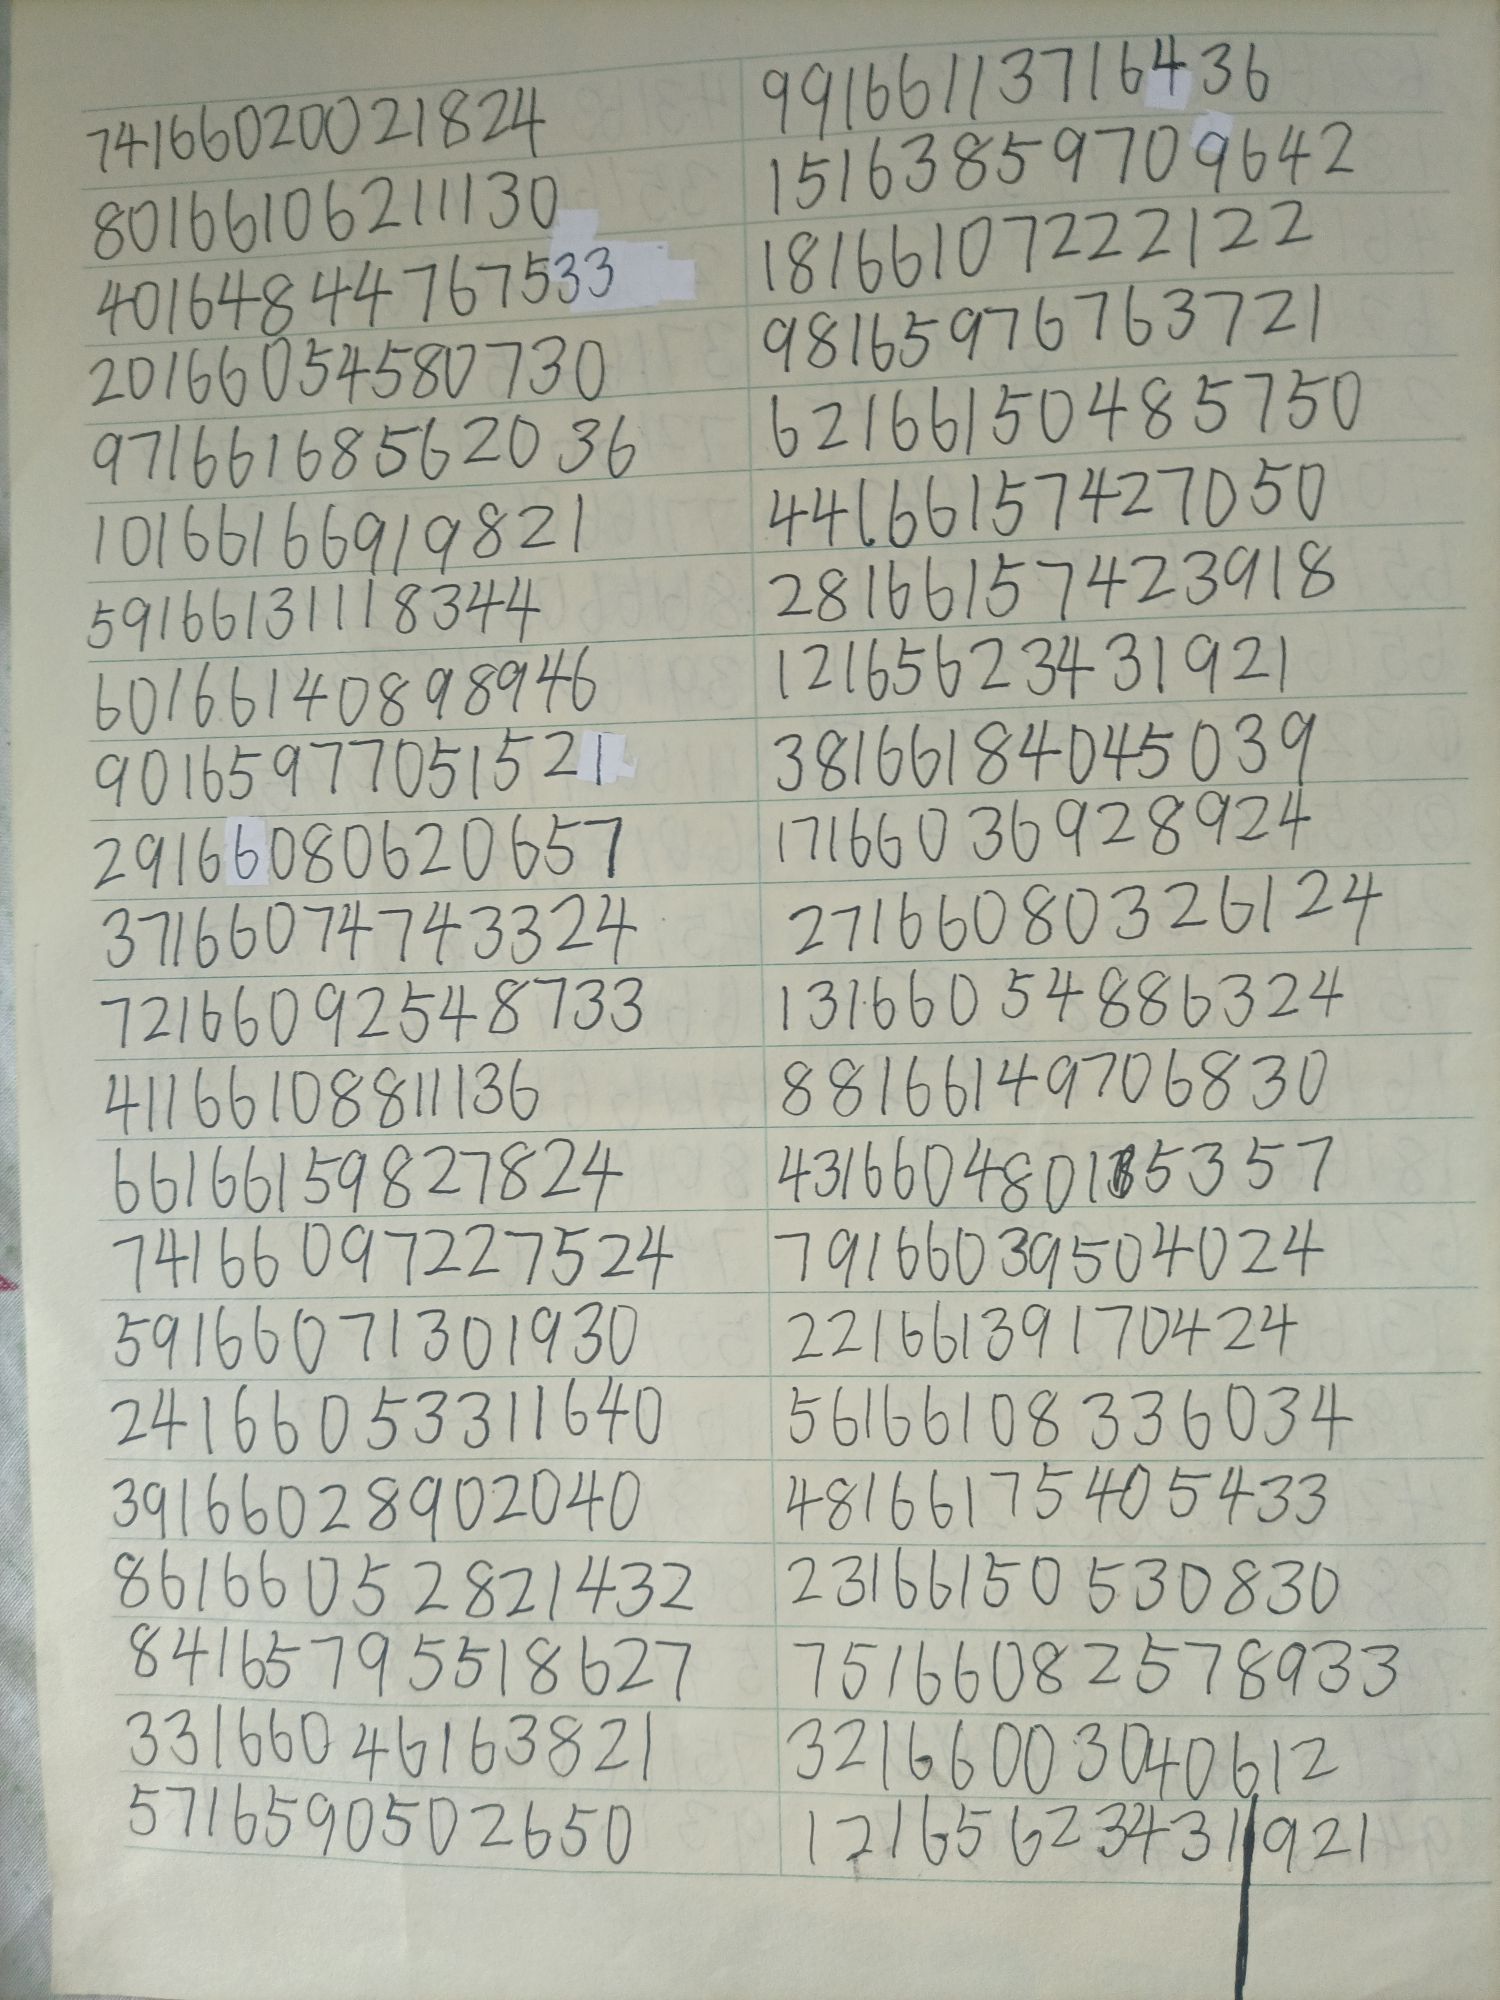 74166020021824
80166106211130
40164844767533
20166054580730
97166168562036
10166166919821
59166131118344
60166140898946
90165977051521
29166080620657
37166074743324
72166092548733
41166108811136
66166159827824
74166097227524
59166071301930
24166053311640
39166028902040
86166052821432
84165795518627
33166046163821
57165905026​50
99166113716436
15163859709642
18166107222122
98165976763721
62166150485750
44166157427050
28166157423918
12165623431921
38166184045039
17166036928924
27166080326124
13166054886324
88166149706830
79166039504024
22166139170424
56166108336034
48166175405433
23166150530830
75166082578933
32166003040612
12165623431921